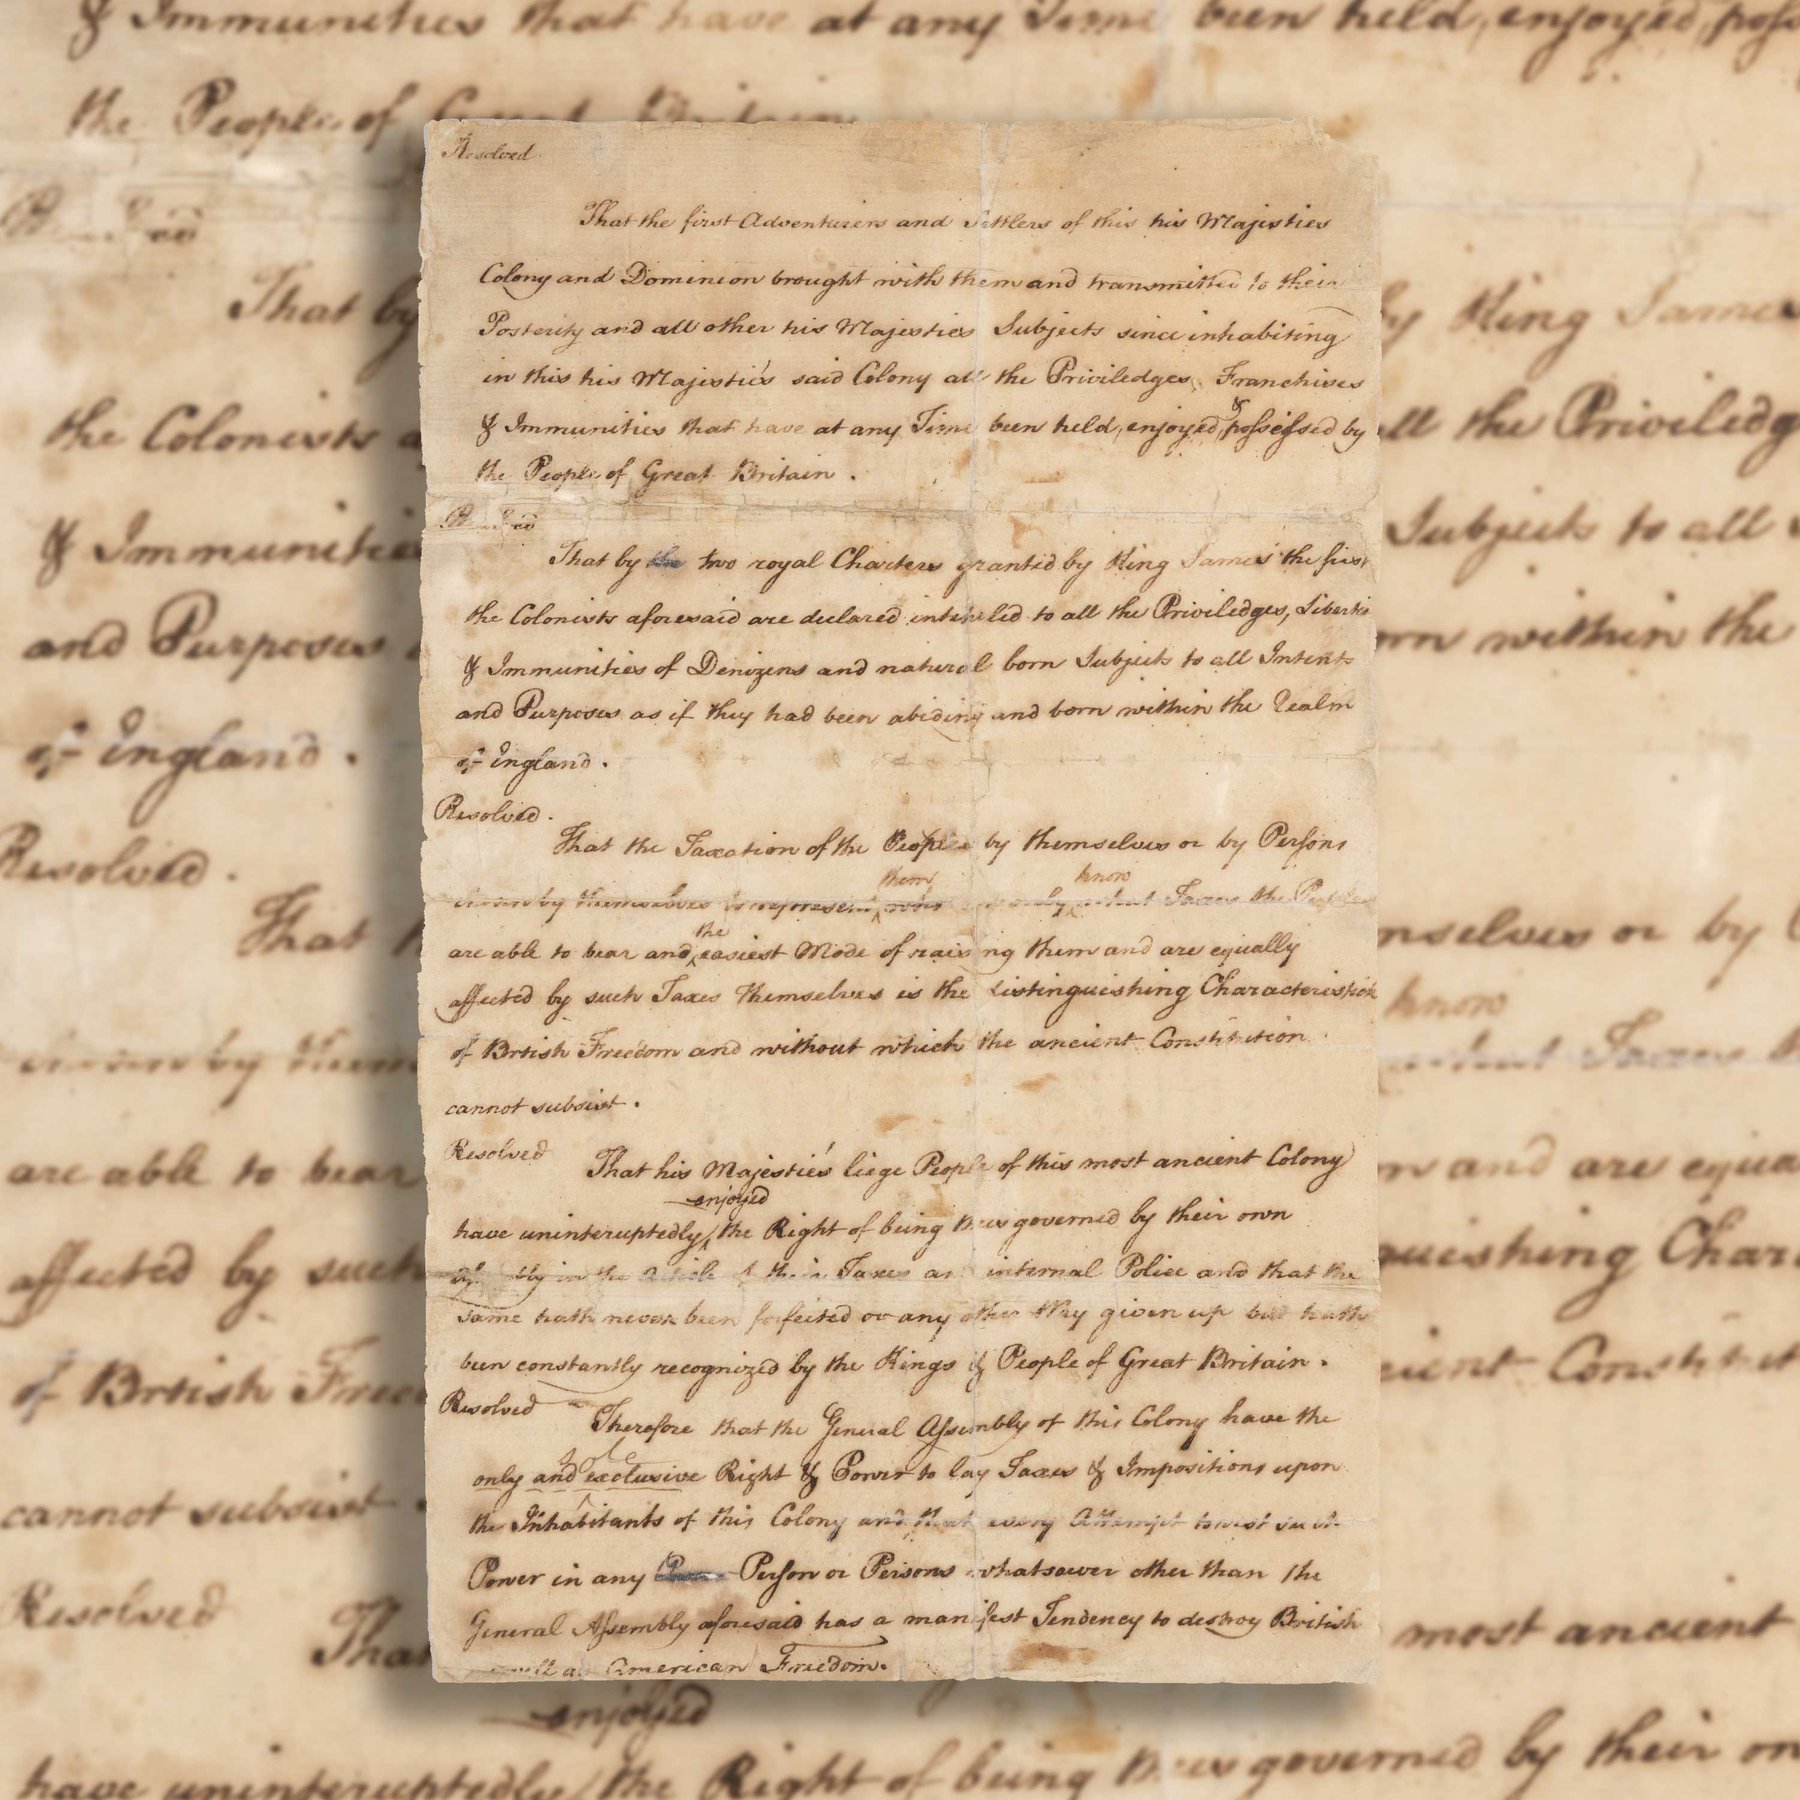 Resolved
That the first Adventurers and Settlers of this his Majesties
Colony and Dominion brought with them and transmitted to their
Posterity and all other his Majesties Subjects since inhabiting
in this his Majestie's said Colony all the Priviledges, Franchises
& Immunities that have at any Time been held, enjoyed, & possessed by
the People of Great Britain.
That by the two royal Charters granted by King James the first
the Colonists aforesaid are declared intituled to all the Priviledges, Liberties
& Immunities of Denizens and natural born Subjects to all Intents
and Purposes as if they had been abiding and born within the Realm
of England.
Resolved.
That the Taxation of the People by themselves or by Persons
them know
by themselves to represent who only what Taxes the People
the
are able to bear and easiest Mode of raising them and are equally
affected by such Taxes themselves is the distinguishing Characteristick
of Brtish Freedom and without which the ancient Constitution
cannot subsist.
Resolved That his Majestie's liege People of this most ancient Colony
enjoyed
have uninteruptedly the Right of being thus governed by their own
in the Article of their Taxes and internal Police and that the
same hath never been forfeited or any other Way given up but hath
been constantly recognized by the Kings & People of Great Britain.
Resolved Therefore that the General Assembly of this Colony have the
sole
only and exclusive Right & Power to lay Taxes & Impositions upon
the Inhabitants of this Colony and that every Attempt to vest such
Power in any Person or Persons whatsoever other than the
General Assembly aforesaid has a manifest Tendency to destroy British
well as American Freedom.